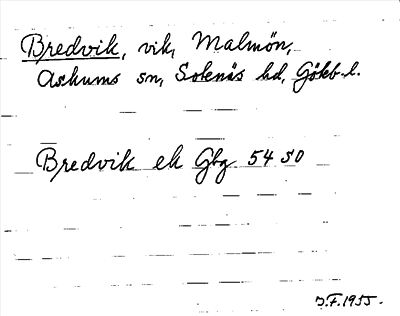 Bredvik, vik, Malmön,
Askums sn, Sotenäs hd, Göteb. l.
Bredvik ek Gbg 54 SO
J.F. 1955.